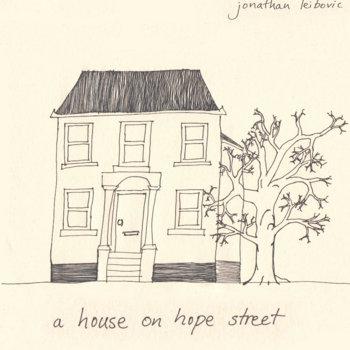 jonathan leibovic
a house on hope street